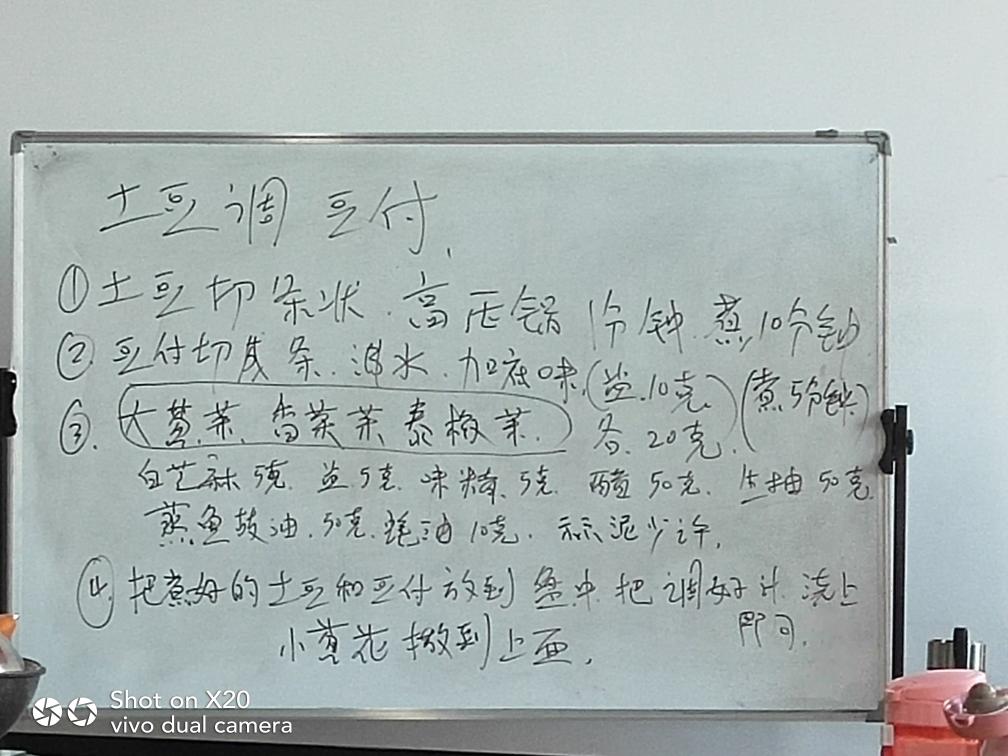 土豆调豆付
①土豆切条状.高压锅 1分钟.煮10分钟
②豆付切成条.淖水.加底味(盐.10克)(煮5分钟)
③.大葱茉.香菜茉泰椒茉.各.20克.
白芝麻5克.盐5克.味精.5克.醋50克.生抽50克.
蒸鱼豉油.50克.蚝油10克.蒜泥少许.
④把煮好的土豆和豆付放到盘中.把调好汁.浇上
即可.
小葱花撒到上面.
Shot on X20
vivo dual camera